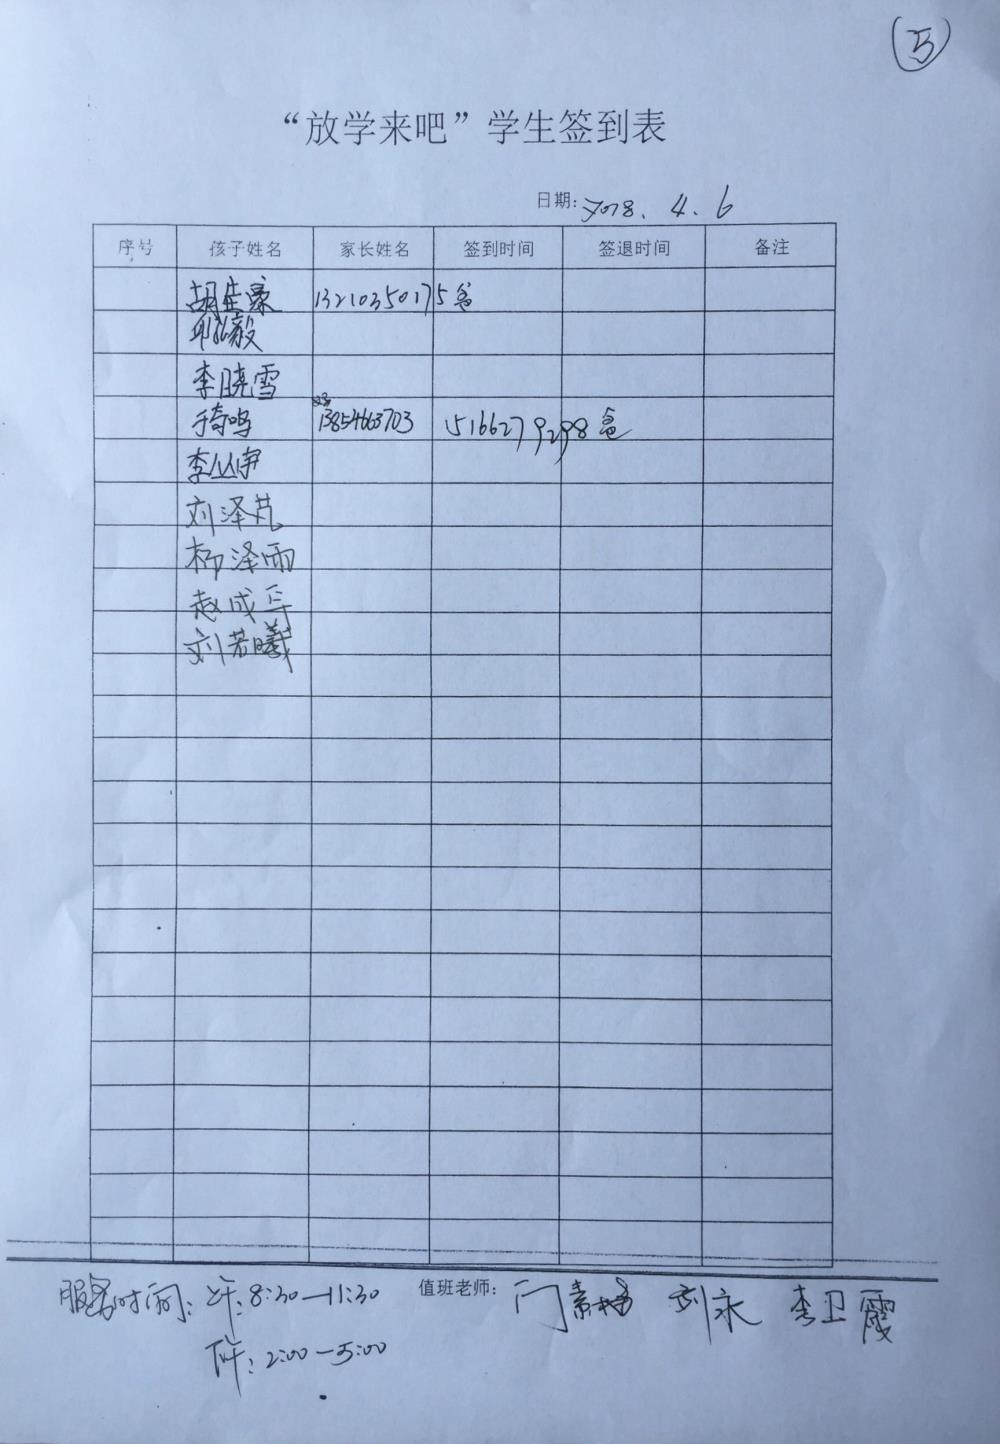 5
“放学来吧”学生签到表
日期: 2018. 4. 6
序号 孩子姓名 家长姓名 签到时间 签退时间 备注
胡 豪 13210350175 爸
毅
李晓雪
于奇鸣 13854663703 15166279298 爸
李
刘泽芃
杨泽雨
赵成
刘若曦
服务时间: 上午: 8:30—11:30 值班老师: 门素梅 刘永 李卫霞
下午: 2:00—5:00